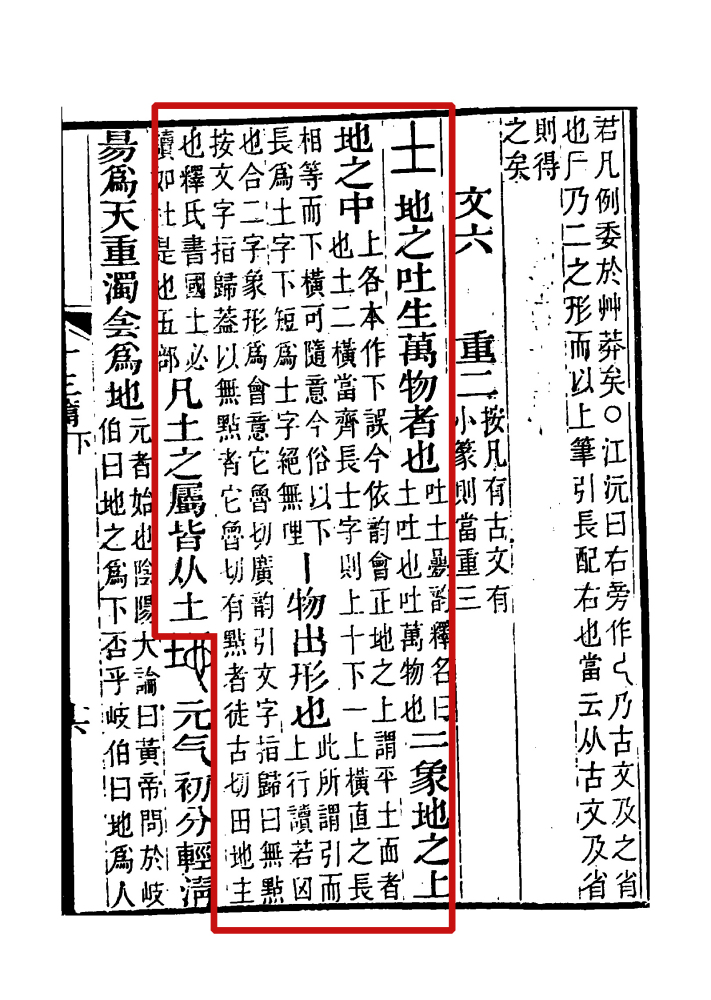 若凡例委於艸莽矣○江沅曰右旁作乁乃古文及之省
也𠂆乃二之形而以上筆引長配右也當云从古文及省
則得
之矣
文六 重二
按凡有古文有
小篆則當重三
土 地之吐生萬物者也
吐土疊韵釋名曰
土吐也吐萬物也
二象地之上
地之中
上各本作下誤今依韵會正地之上謂平土面者
也土二橫當齊長士字則上十下一上橫直之長
相等而下橫可隨意今俗以下
長爲土字下短爲士字絕無理
丨物出形也
此所謂引而
上行讀若囟
也合二字象形爲會意它魯切廣韵引文字指歸曰無點
按文字指歸葢以無點者它魯切有點者徒古切田地主
也釋氏書國土必
讀如杜是也五部
凡土之屬皆从土
地 元气初分輕淸
昜爲天重濁侌爲地
元者始也陰陽大論曰黃帝問於岐
伯曰地之爲下否乎岐伯曰地爲人
十三篇下